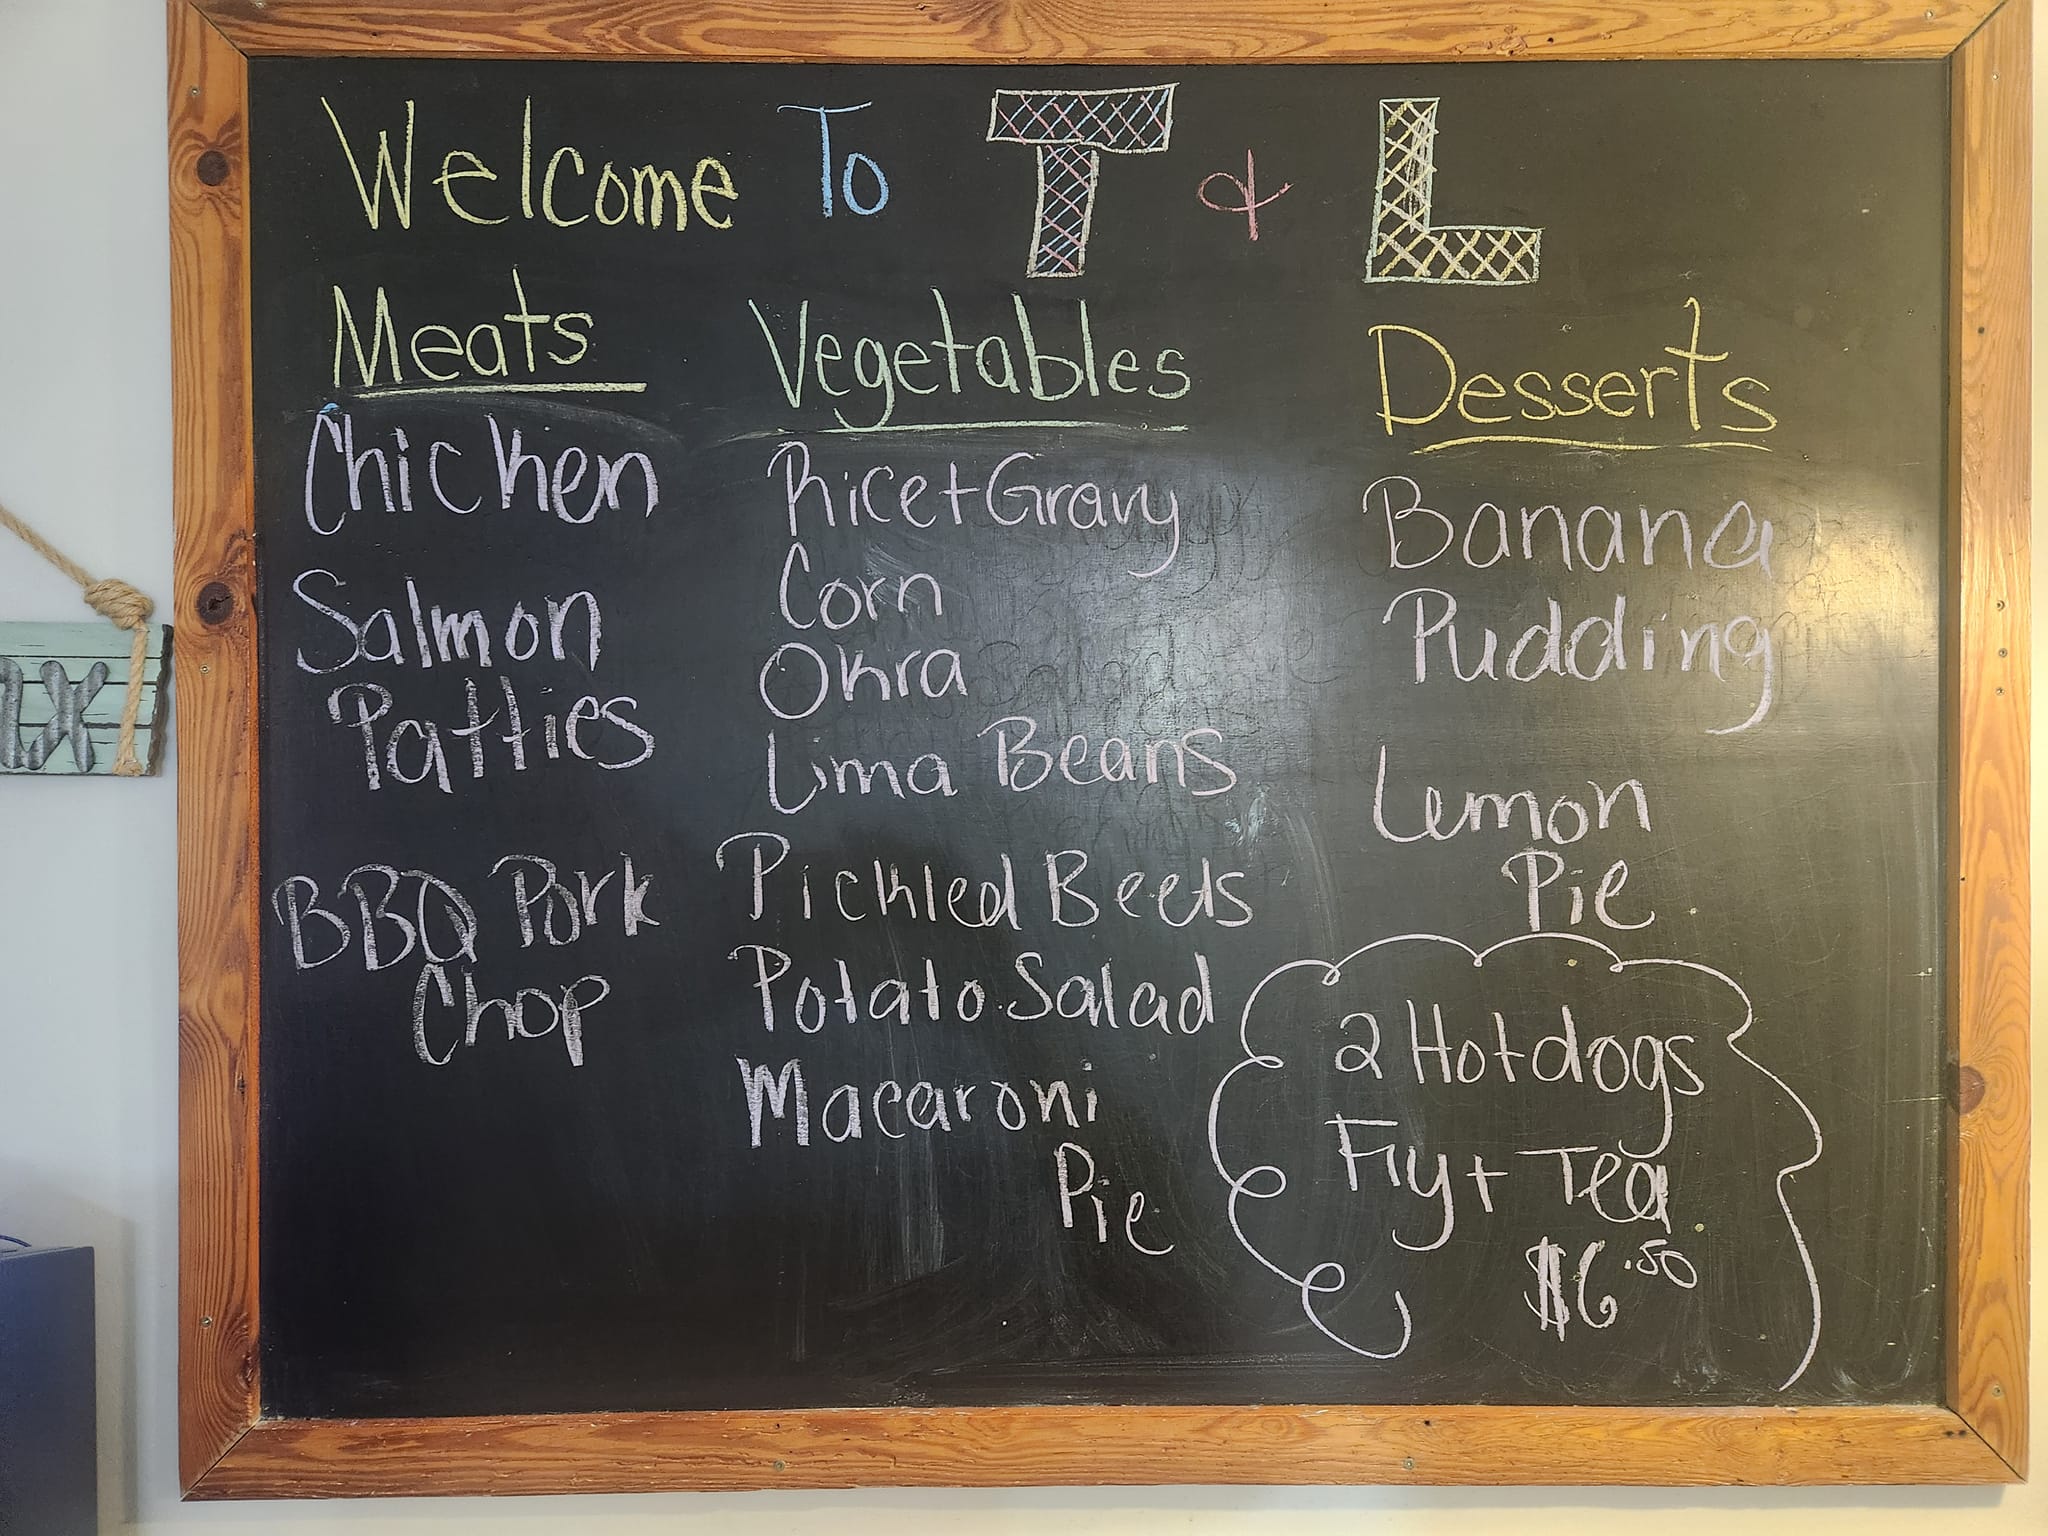 Welcome To T & L
Meats
Chicken
Salmon
Patties
BBQ Pork
Chop
Vegetables
Rice + Gravy
Corn
Okra
Lima Beans
Pickled Beets
Potato Salad
Macaroni
Pie
Desserts
Banana
Pudding
Lemon
Pie
2 Hotdogs
Fry + Tea
$6.50